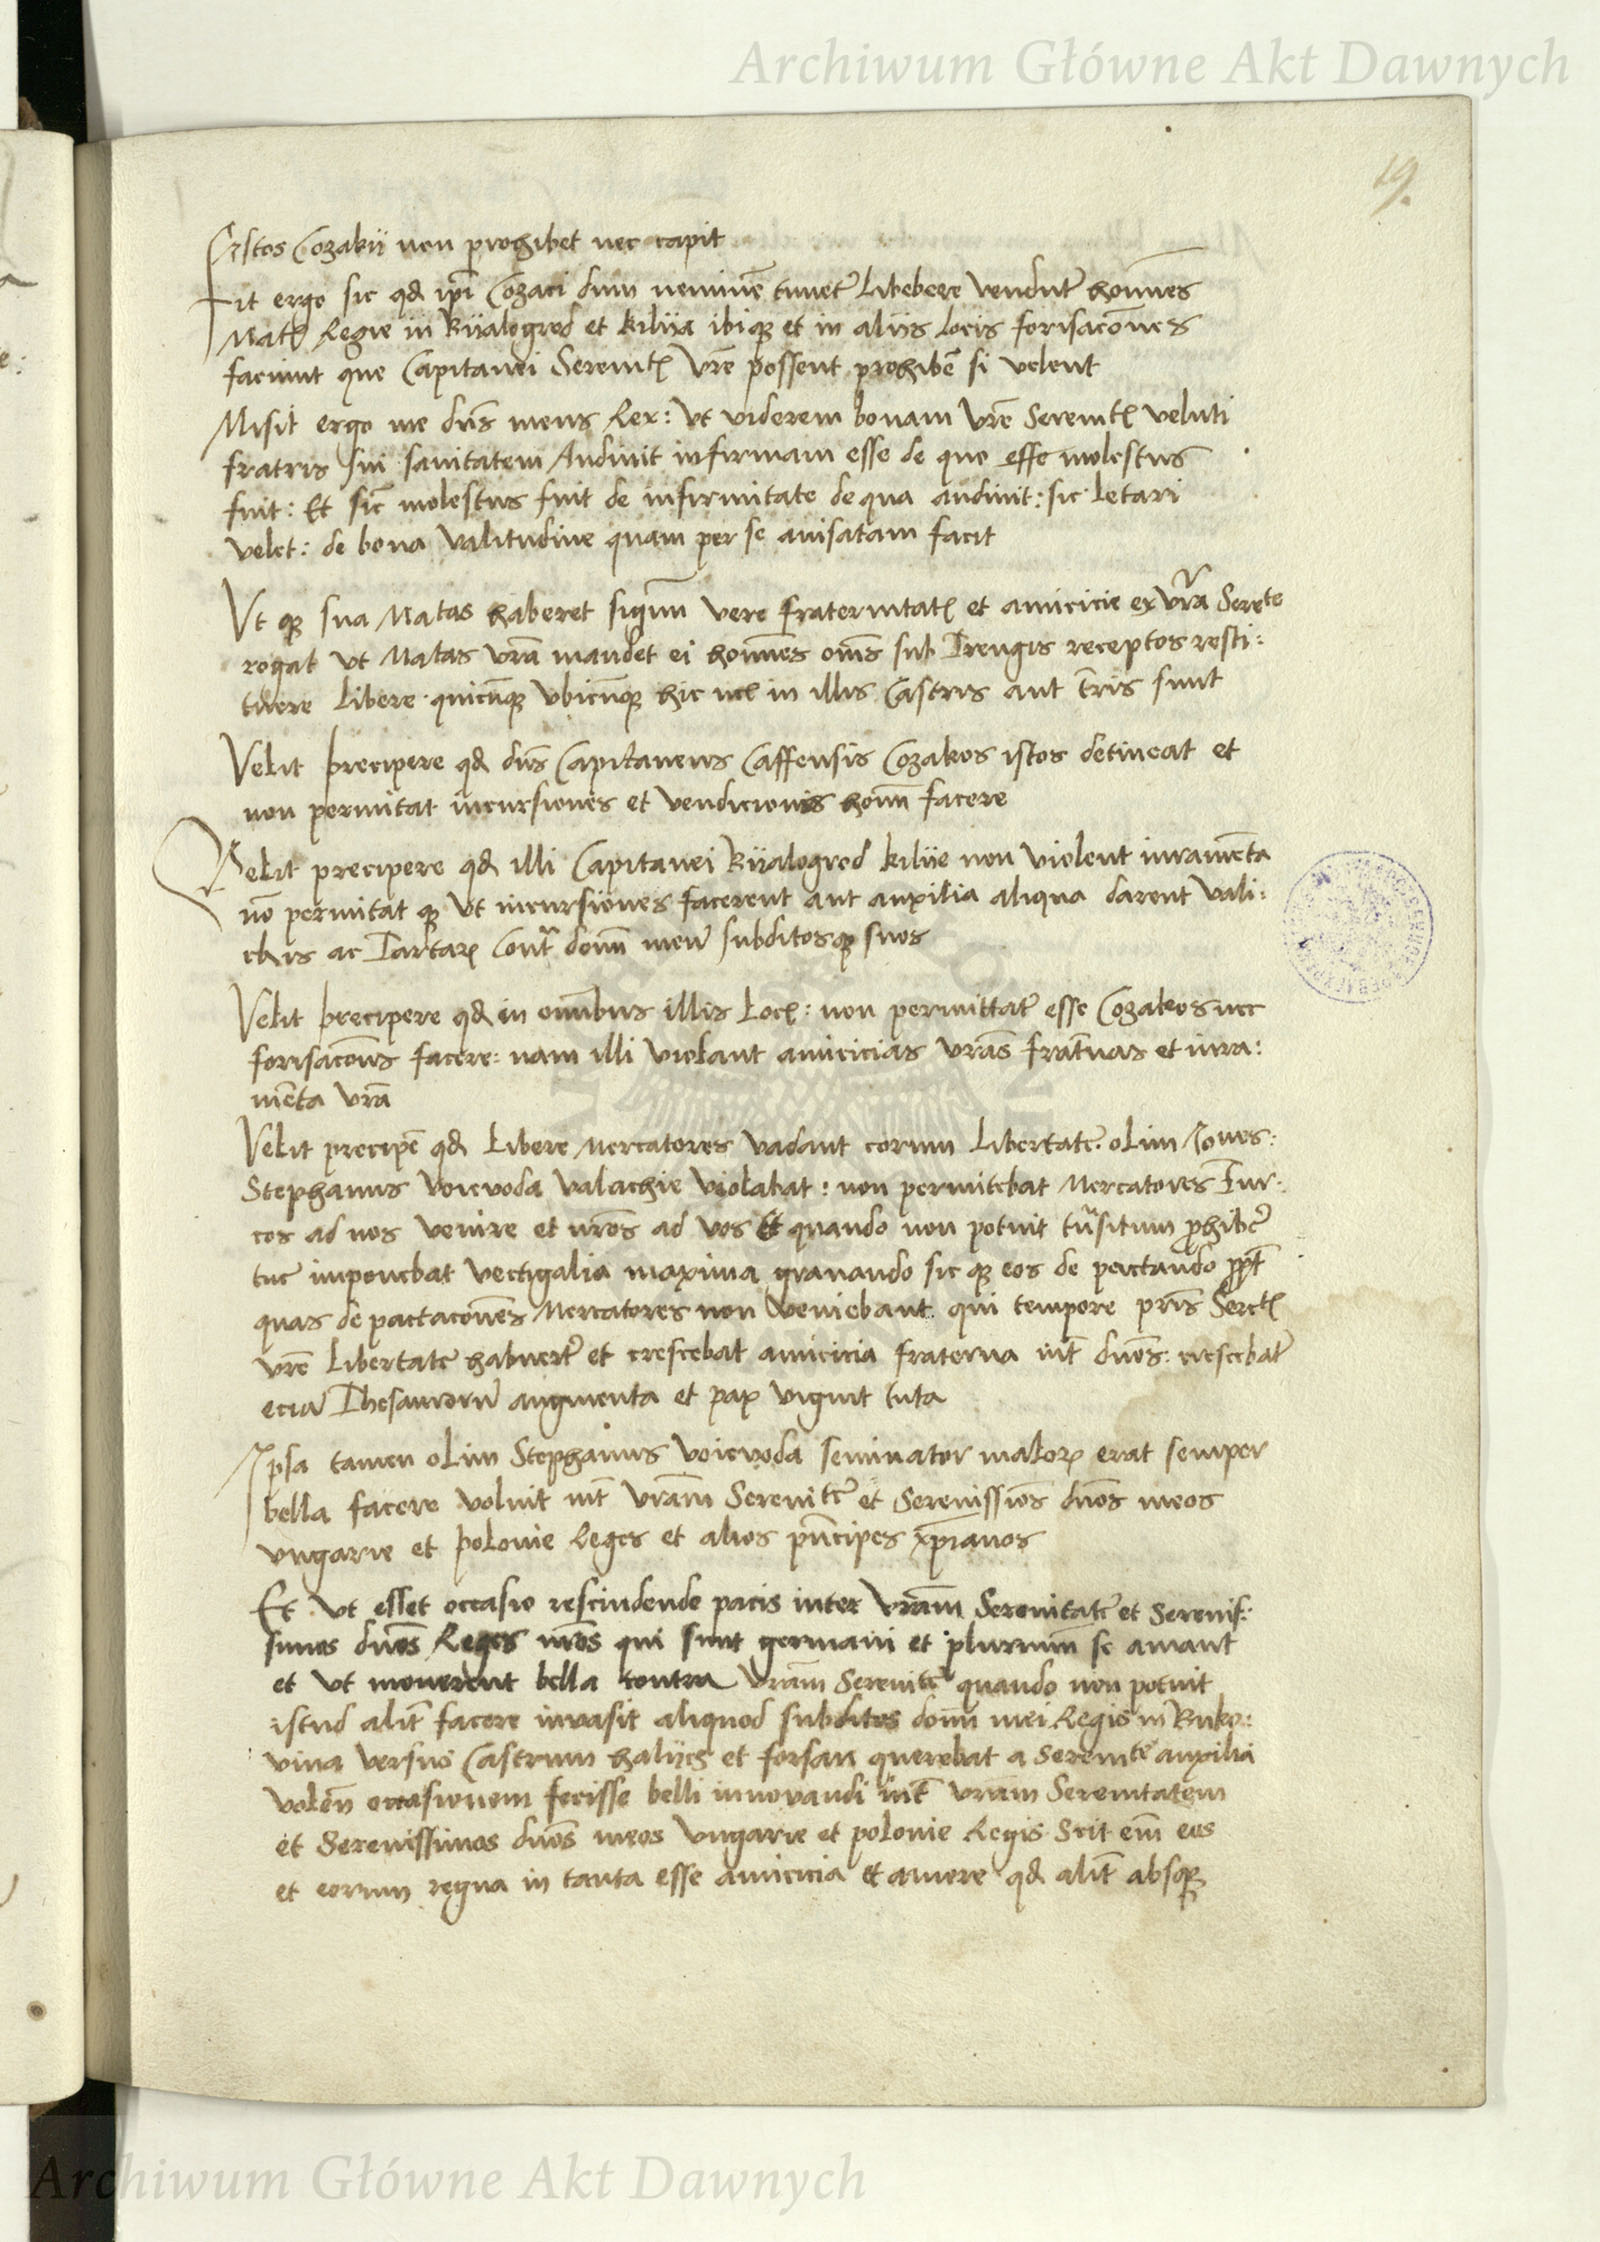 Archiwum Główne Akt Dawnych
19.
Istos Cozakii non prohibet nec capit
Fit ergo sic qd ipi Cozaci dum neminē timēt Libebere vendūt homines
Matis Regie in Biialogrod et kiliia ibiqȝ et in aliis locis forisacones
faciunt que Capitanei Serenitis vre possent prohibē si velent
Misit ergo me dns meus Rex: vt viderem bonam vre Serenitis veluti
fratris sui sanitatem Audiuit infirmam esse de quo esse molestus
fuit: Et sic molestus fuit de infirmitate de qua audiuit: sic letari
velet: de bona valitudine quam per se auisatam facit
Vt qȝ sua Matas haberet signum vere fraternitatis et amicicie ex vra Serēte
rogat vt Matas vra mandet ei homines omēs sub Treugis receptos resti:
tuere Libere quicūqȝ vbicūqȝ hic vel in illis Castris aut tris sunt
Velit precipere qd dns Capitaneus Caffensis Cozakos istos detineat et
non permitat incursiones et vendiciones hoīm facere
Velit precipere qd illi Capitanei Biialogrod kiliie non violent iuramēta
nō permitat qȝ vt incursiones facerent aut auxilia aliqua darent vali:
chis ac Tartaris Contra dom meū subditosqȝ suos
Velit precipere qd in omibus illis Locis: non permittāt esse Cozakos nec
forisacones facere: nam illi violant amicicias vras fratnas et iura:
mēta vra
Velit precipē qd Libere Mercatores vadant eorum Libertatē olim
Stephanus voievoda valachie violabat: non permitebat Mercatores Tur:
cos ad nos venire et nros ad vos Et quando non potuit trāsitum phibē
tūc imponebat vectigalia maxima grauando sic qȝ eos de pactando ppt
quas de pactacones Mercatores non veniebant qui tempore pris Serētis
vre Libertatē habuerūt et crescebat amicicia fraterna int duos: crescebāt
eciā Thesaurorū augmenta et pax viguit tuta
Ipsa tamen olim Stephanus voievoda seminator malorum erat semper
bella facere voluit int vram Serenitatē et Serenissios duos meos
vngarie et polonie Reges et alios pncipes xpianos
Et vt esset occasio rescindende pacis inter vram Serenitatē et Serenis:
simos dnos Reges meos qui sunt germani et plurimum se amant
et vt mouerent bella contra vram Serenitatē quando non potuit
istud alit facere inuasit aliquod subditos domi mei Regis in Buko:
vina versus Castrum halijcz et forsan querebat a Serenitē auxilia
volēn occasionem fecisse belli innouandi int vram Serenitatem
et Serenissimos dnos meos vngarie et polonie Regis Scit em eos
et eorum regna in tanta esse amicicia et amore qd alit absqȝ
Archiwum Główne Akt Dawnych